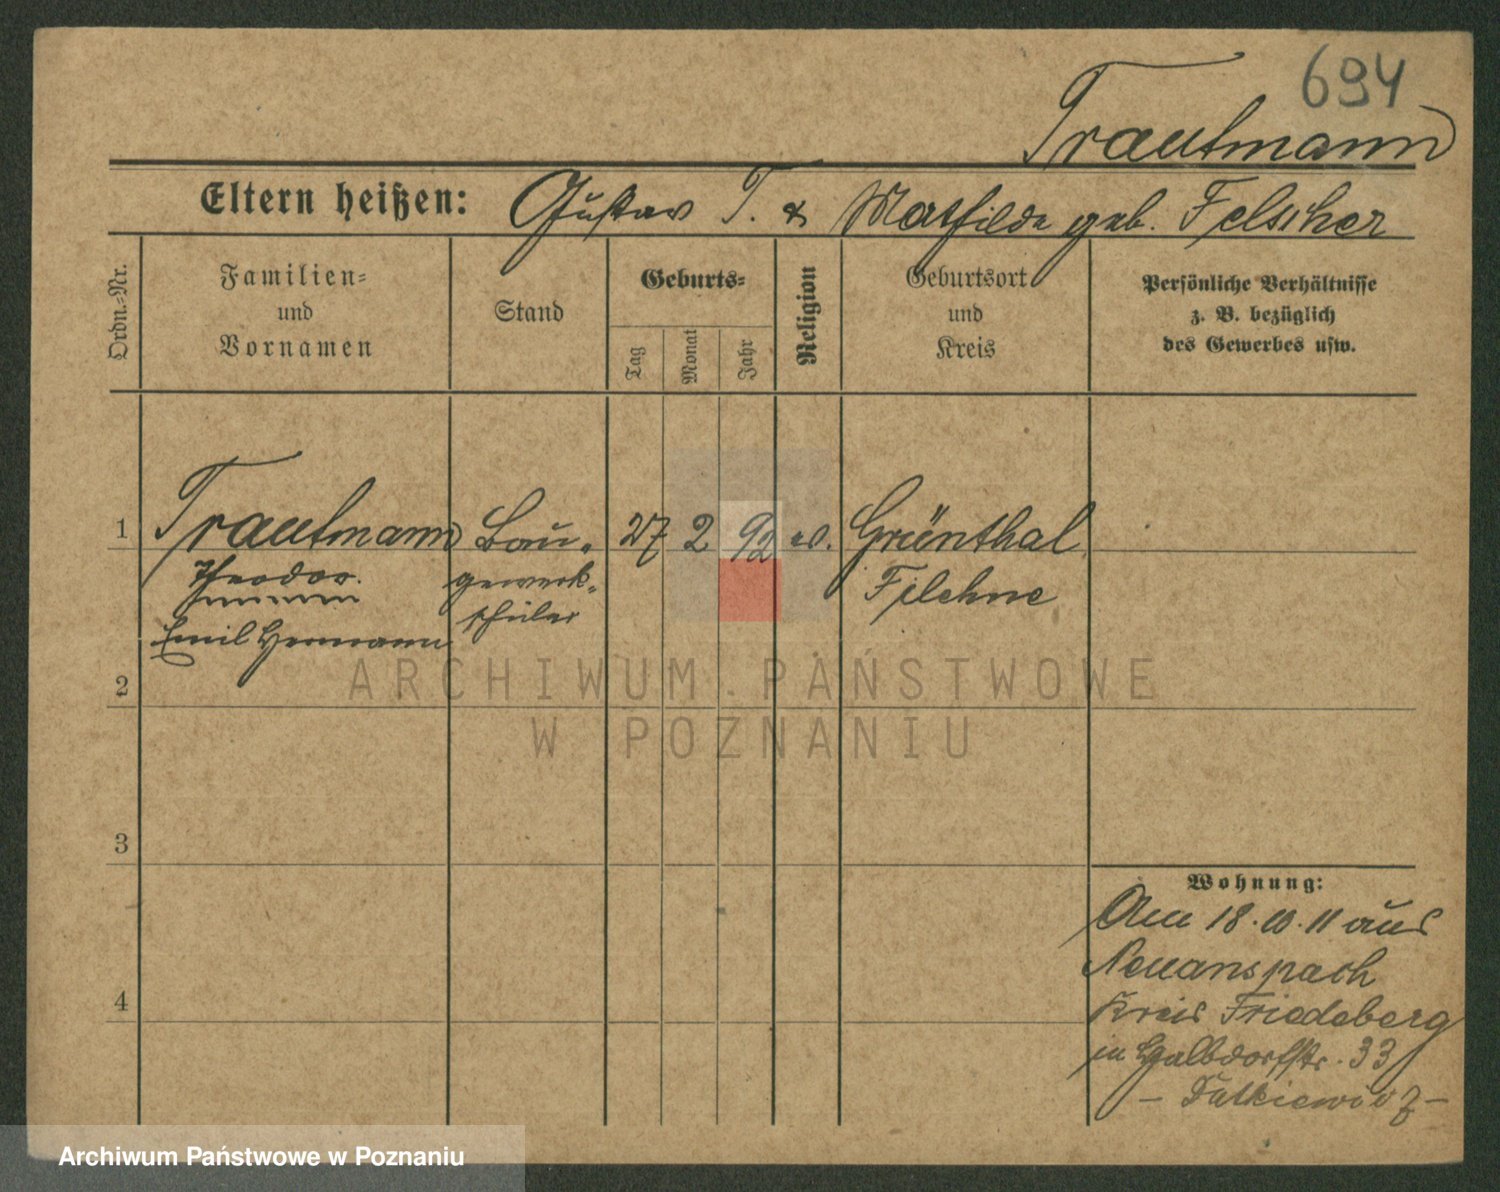 694
Trautmann
Eltern heißen: Gustav T. & Mathilde geb. Felscher
Ordn.=Nr.
Familien=
und
Vornamen
Stand
Geburts=
Tag
Monat
Jahr
Religion
Geburtsort
und
Kreis
Persönliche Verhältnisse
z. B. bezüglich
des Gewerbes usw.
1 Trautmann Bau- 27 2 92 ev. Grünthal
Theodor gewerk- Filehne
schüler
Emil Hermann
ARCHIWUM PAŃSTWOWE
2
W POZNANIU
3
Wohnung:
Am 18.10.11 aus
Neuanspach
4 Kreis Friedeberg
in Halbdorfstr. 33
- Dutkiewicz -
Archiwum Państwowe w Poznaniu